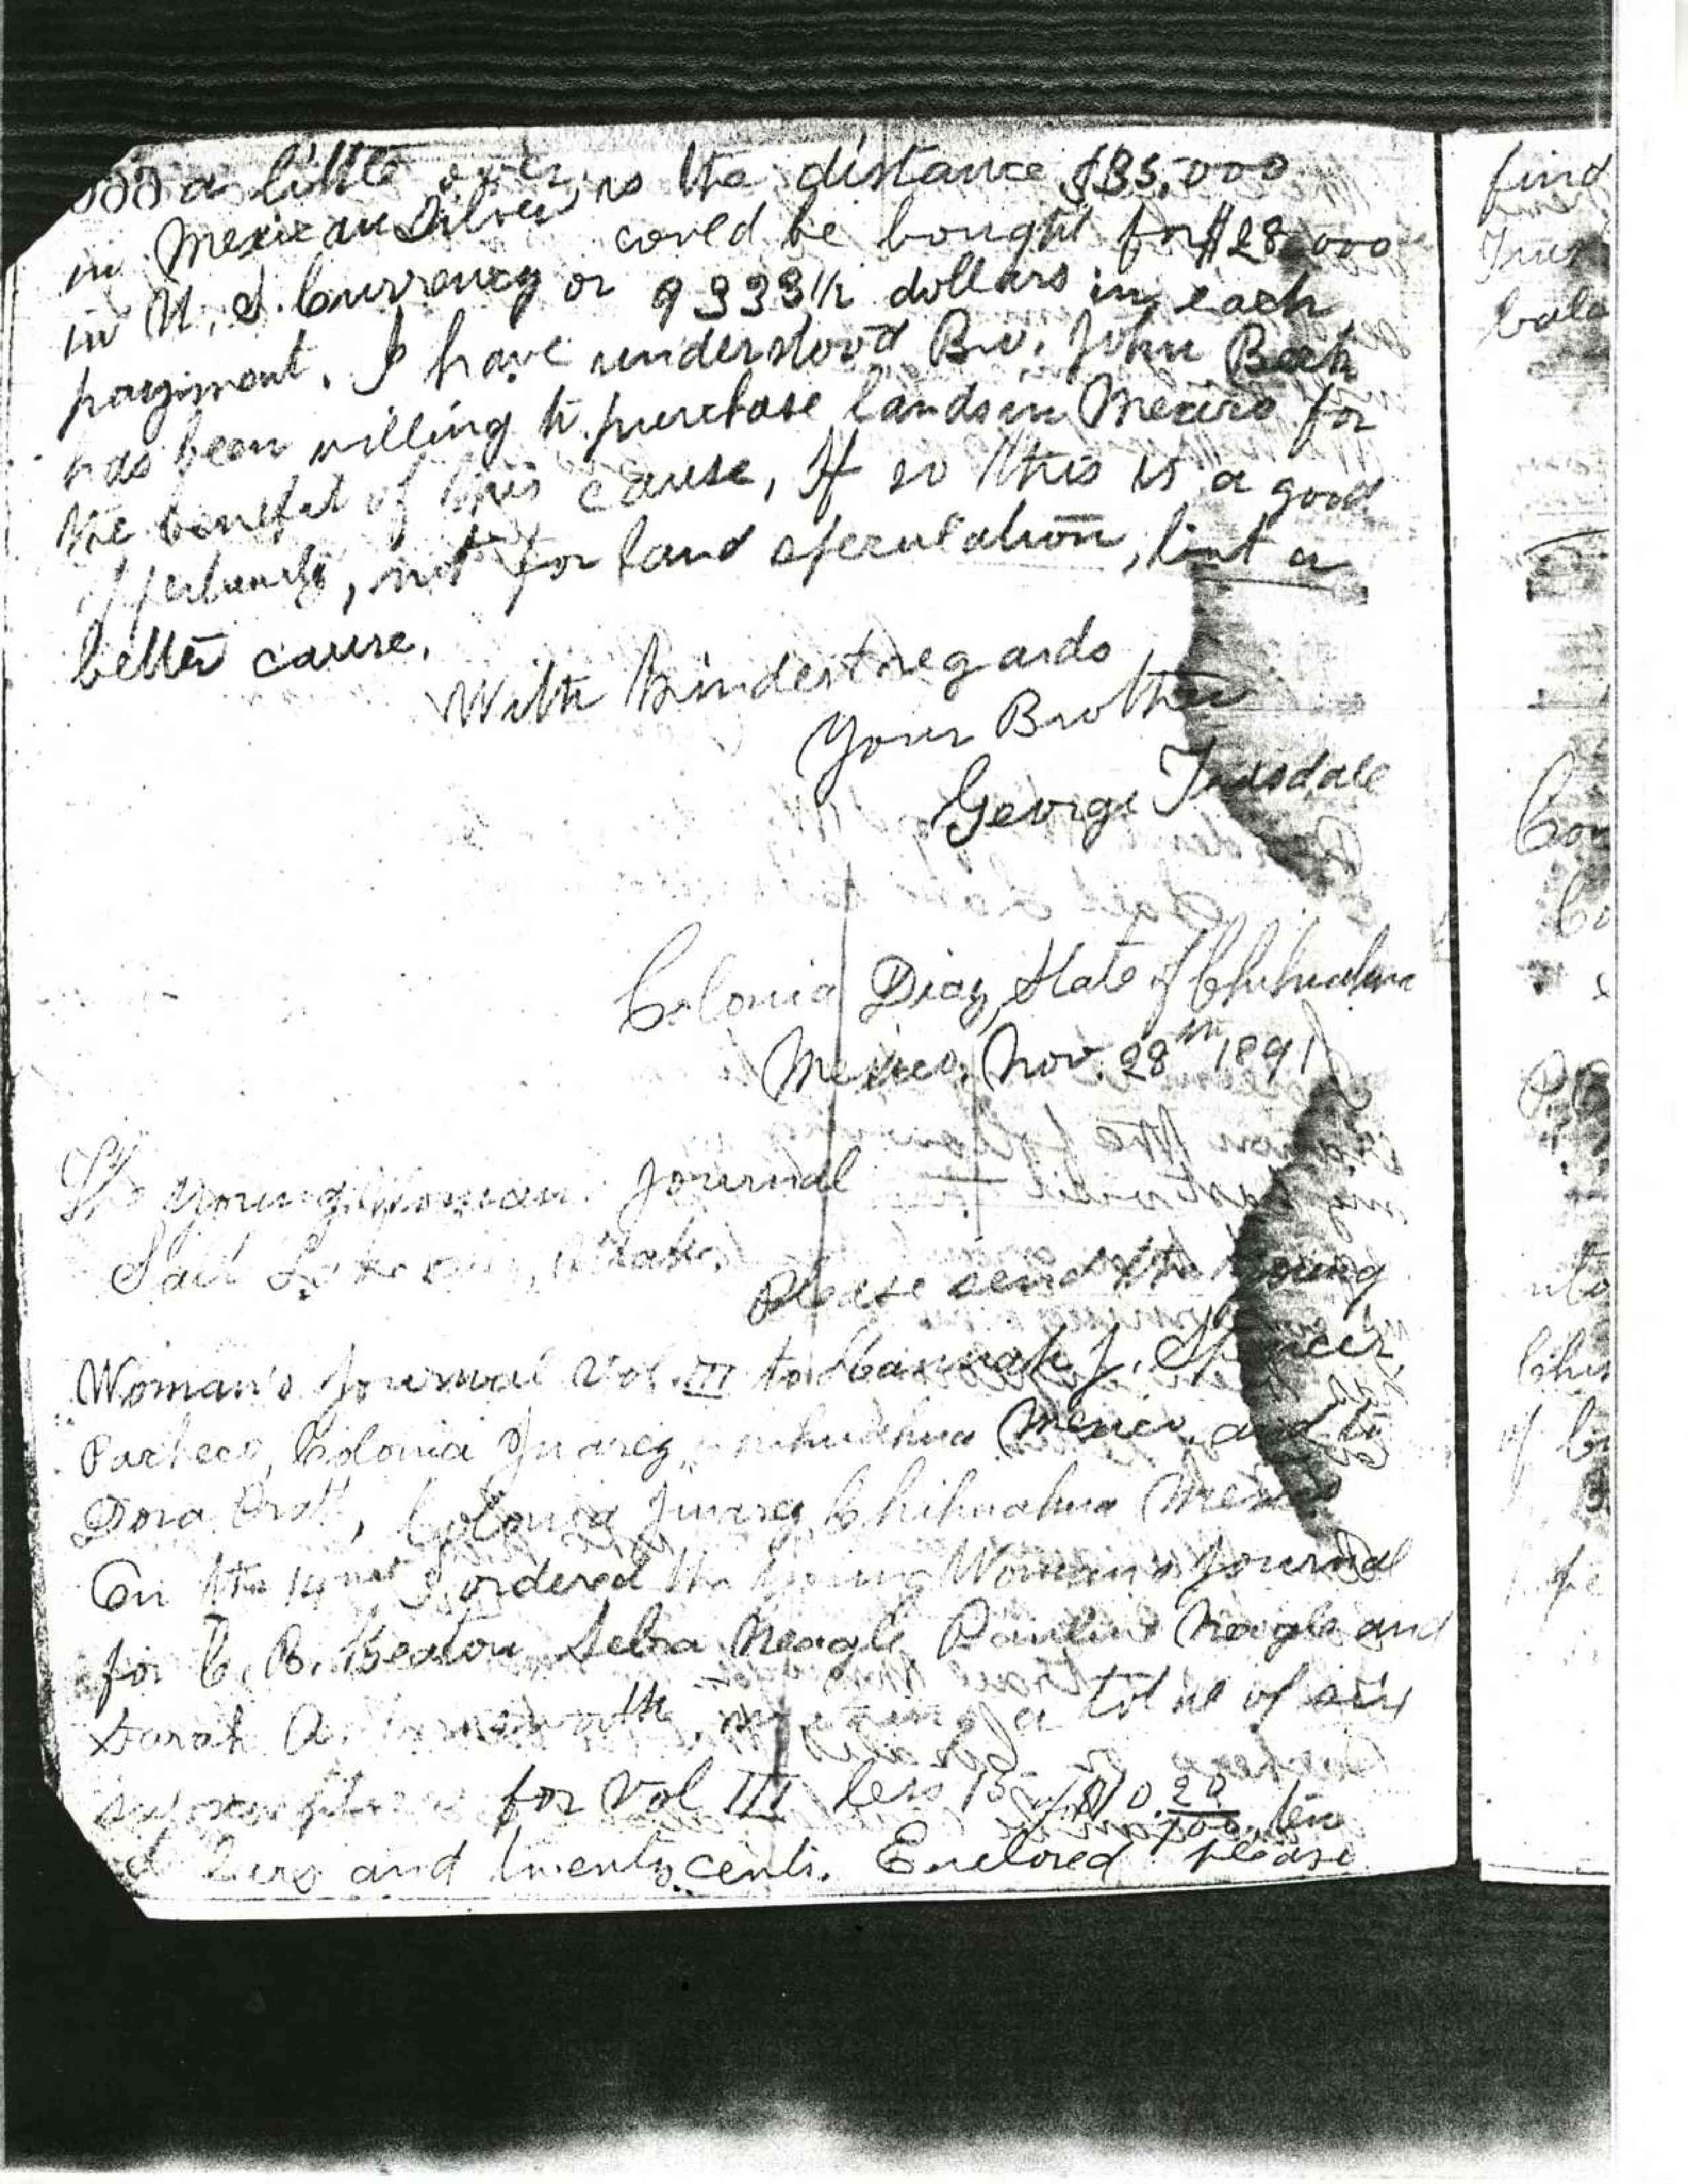 a little over, is the distance $35,000
in Mexican Silver could be bought for $28000
in U. S. Currency or 9333 1/2 dollars in each
payment. I have understood Bro. John Beck
has been willing to purchase lands in Mexico for
the benefit of this cause, If so this is a good
, not for land speculation, but a
better cause.
With kindest regards
Your Brother
George Teasdale
Colonia Diaz, State of Chihuahua
Mexico, Nov. 28th 1891
The Young Woman's Journal
Salt Lake City, Utah.
Please send the Young
Woman's Journal Vol. III to Hannah J. Spencer,
Pacheco, Colonia Juarez, Chihuahua Mexico and to
Dora Pratt, Colonia Juarez, Chihuahua Mexico
On the 14 I ordered the Young Woman's Journal
for C. B. Heaton Naegle Pauline Naegle and
Sarah a total of six
for Vol III less 15 $10.20/100, ten
dollars and twenty cents. Enclosed please
find